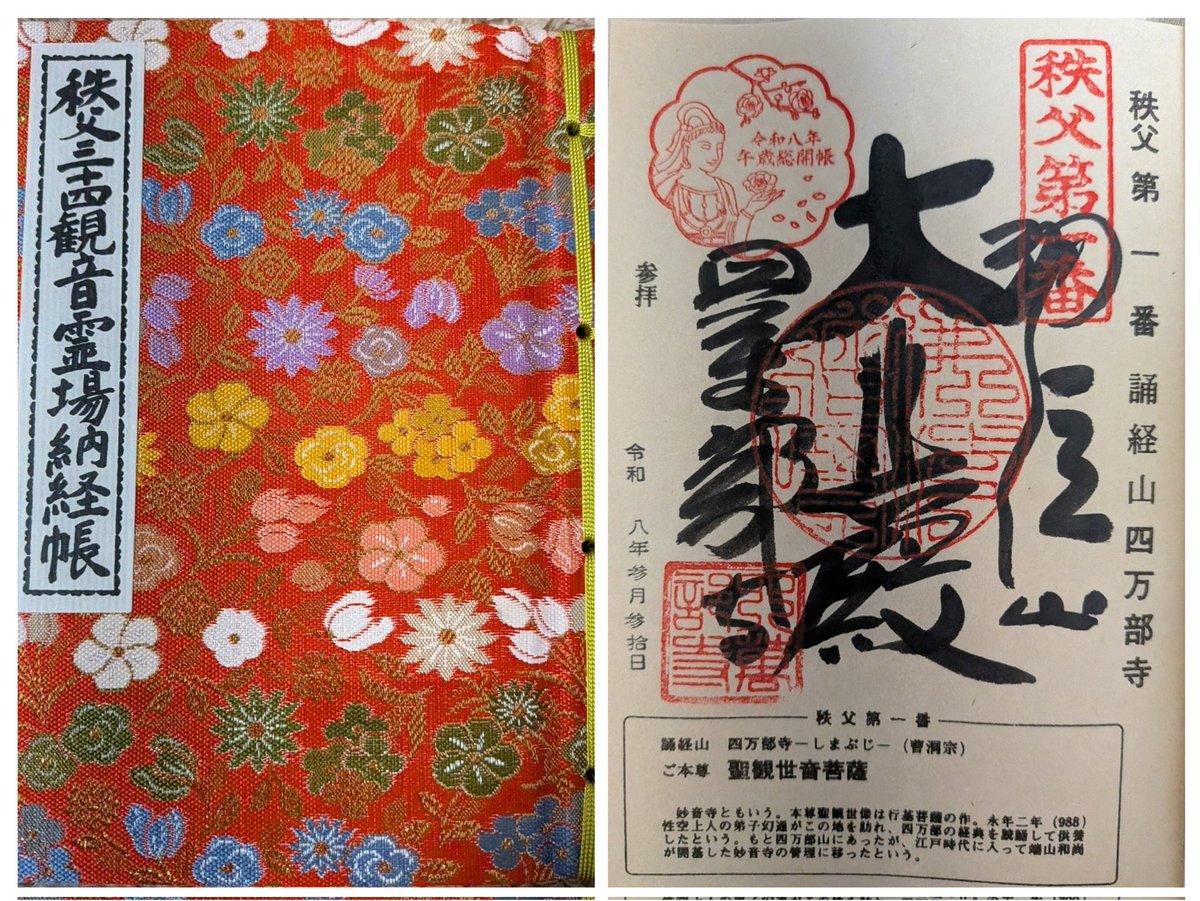 秩父三十四観音霊場納経帳
秩父第一番 誦経山 四万部寺
秩父第一番
令和八年
午歳総開帳
誦経山
大悲殿
四萬部寺
参拝
令和 八年参月参拾日
秩父第一番
誦経山 四万部寺−しまぶじ−（曹洞宗）
ご本尊 聖観世音菩薩
妙音寺ともいう。本尊聖観世像は行基菩薩の作。永年二年（988）
性空上人の弟子幻通がこの地を訪れ、四万部の経典を読誦して供養
したという。もと四万部山にあったが、江戸時代に入って端山和尚
が開基した妙音寺の管理に移ったという。